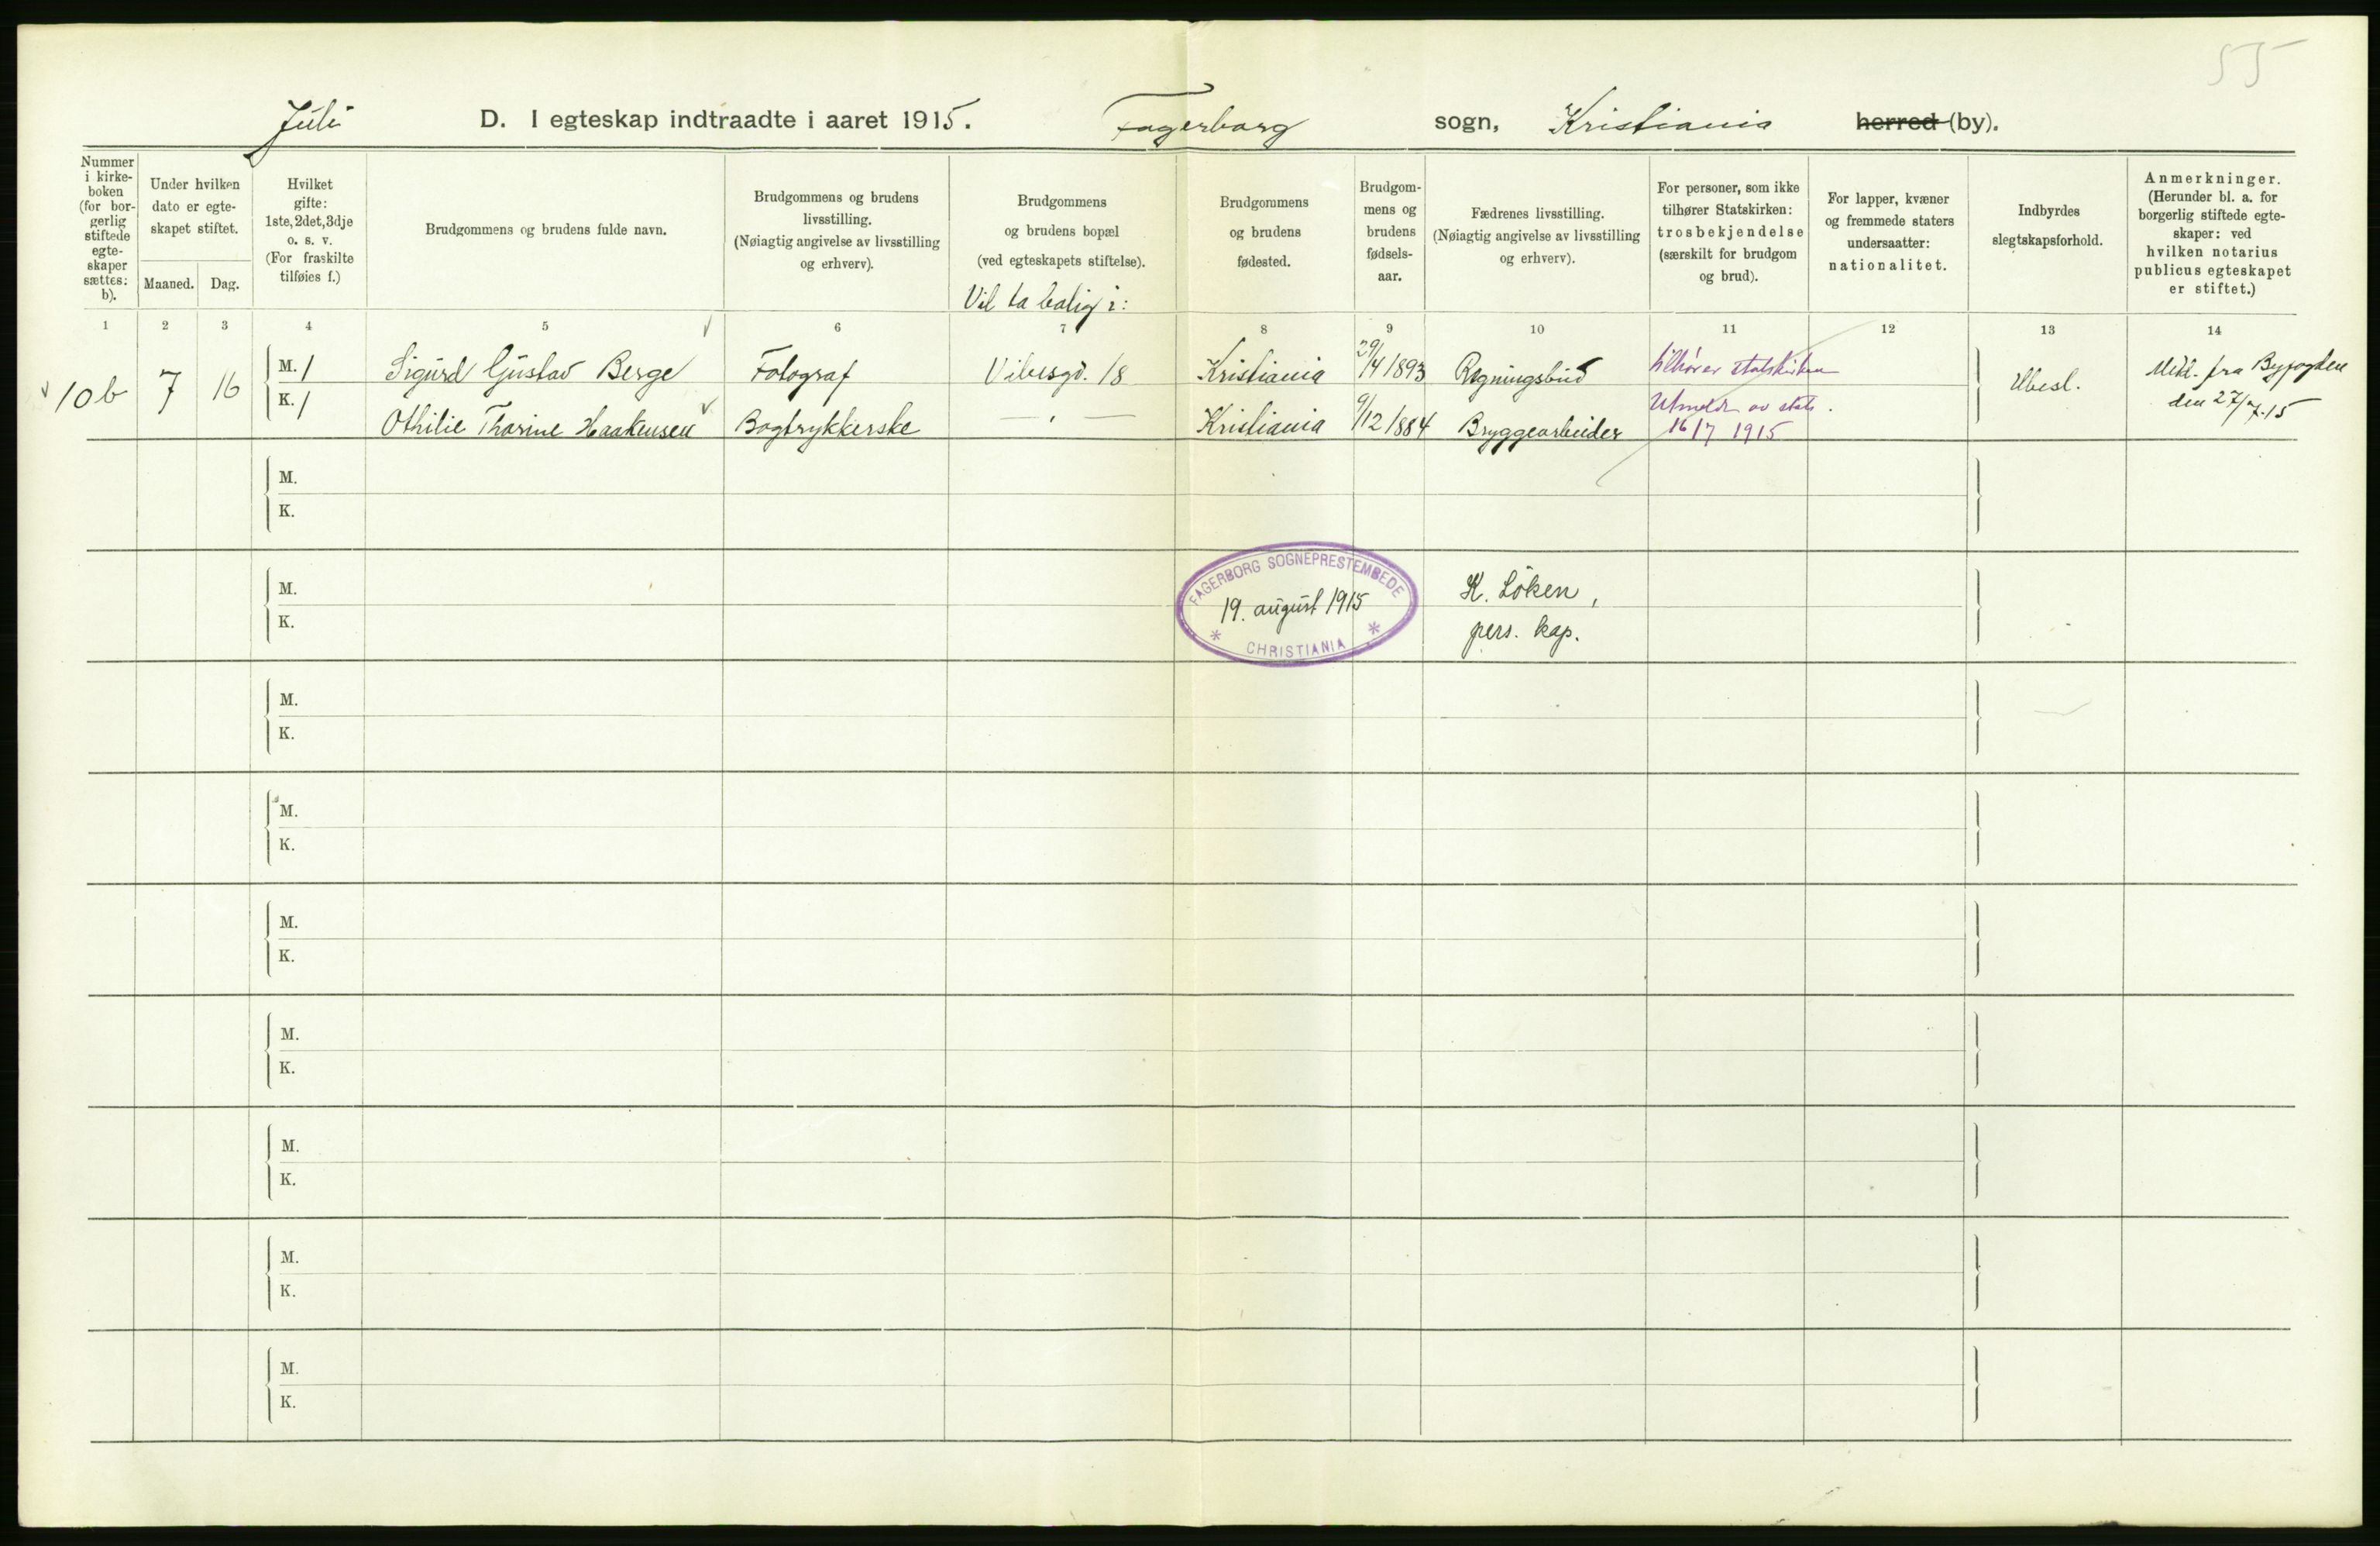 55
Juli D. I egteskap indtraadte i aaret 1915. Fagerborg sogn, Kristiania herred (by).
Nummer
i kirke-
boken
(for bor-
gerlig
stiftede
egte-
skaper
sættes:
b).
Under hvilken
dato er egte-
skapet stiftet.
Maaned. Dag.
Hvilket
gifte:
1ste, 2det, 3dje
o. s. v.
(For fraskilte
tilføies f.)
Brudgommens og brudens fulde navn.
Brudgommens og brudens
livsstilling.
(Nøiagtig angivelse av livsstilling
og erhverv).
Brudgommens
og brudens bopæl
(ved egteskapets stiftelse).
Vil ta bolig i:
Brudgommens
og brudens
fødested.
Brudgom-
mens og
brudens
fødsels-
aar.
Fædrenes livsstilling.
(Nøiagtig angivelse av livsstilling
og erhverv).
For personer, som ikke
tilhører Statskirken:
trosbekjendelse
(særskilt for brudgom
og brud).
For lapper, kvæner
og fremmede staters
undersaatter:
nationalitet.
Indbyrdes
slegtskapsforhold.
Anmerkninger.
(Herunder bl. a. for
borgerlig stiftede egte-
skaper: ved
hvilken notarius
publicus egteskapet
er stiftet.)
1 2 3 4 5 6 7 8 9 10 11 12 13 14
10 b 7 16
M. 1 Sigurd Gustav Berge Fotograf Vibesgd. 18 Kristiania 29/4 1893 Regningsbud tilhører statskirken
K. 1 Othilie Thorine Haakensen Bogtrykkerske — " — Kristiania 9/12 1884 Bryggearbeider Utmeldt av stats.
16/7 1915
Ubesl.
Medd. fra Byfogden
den 27/7-15
M.
K.
M.
K.
FAGERBORG SOGNEPRESTEMBEDE
19. august 1915
* CHRISTIANIA *
K. Löken,
pers. kap.
M.
K.
M.
K.
M.
K.
M.
K.
M.
K.
M.
K.
M.
K.